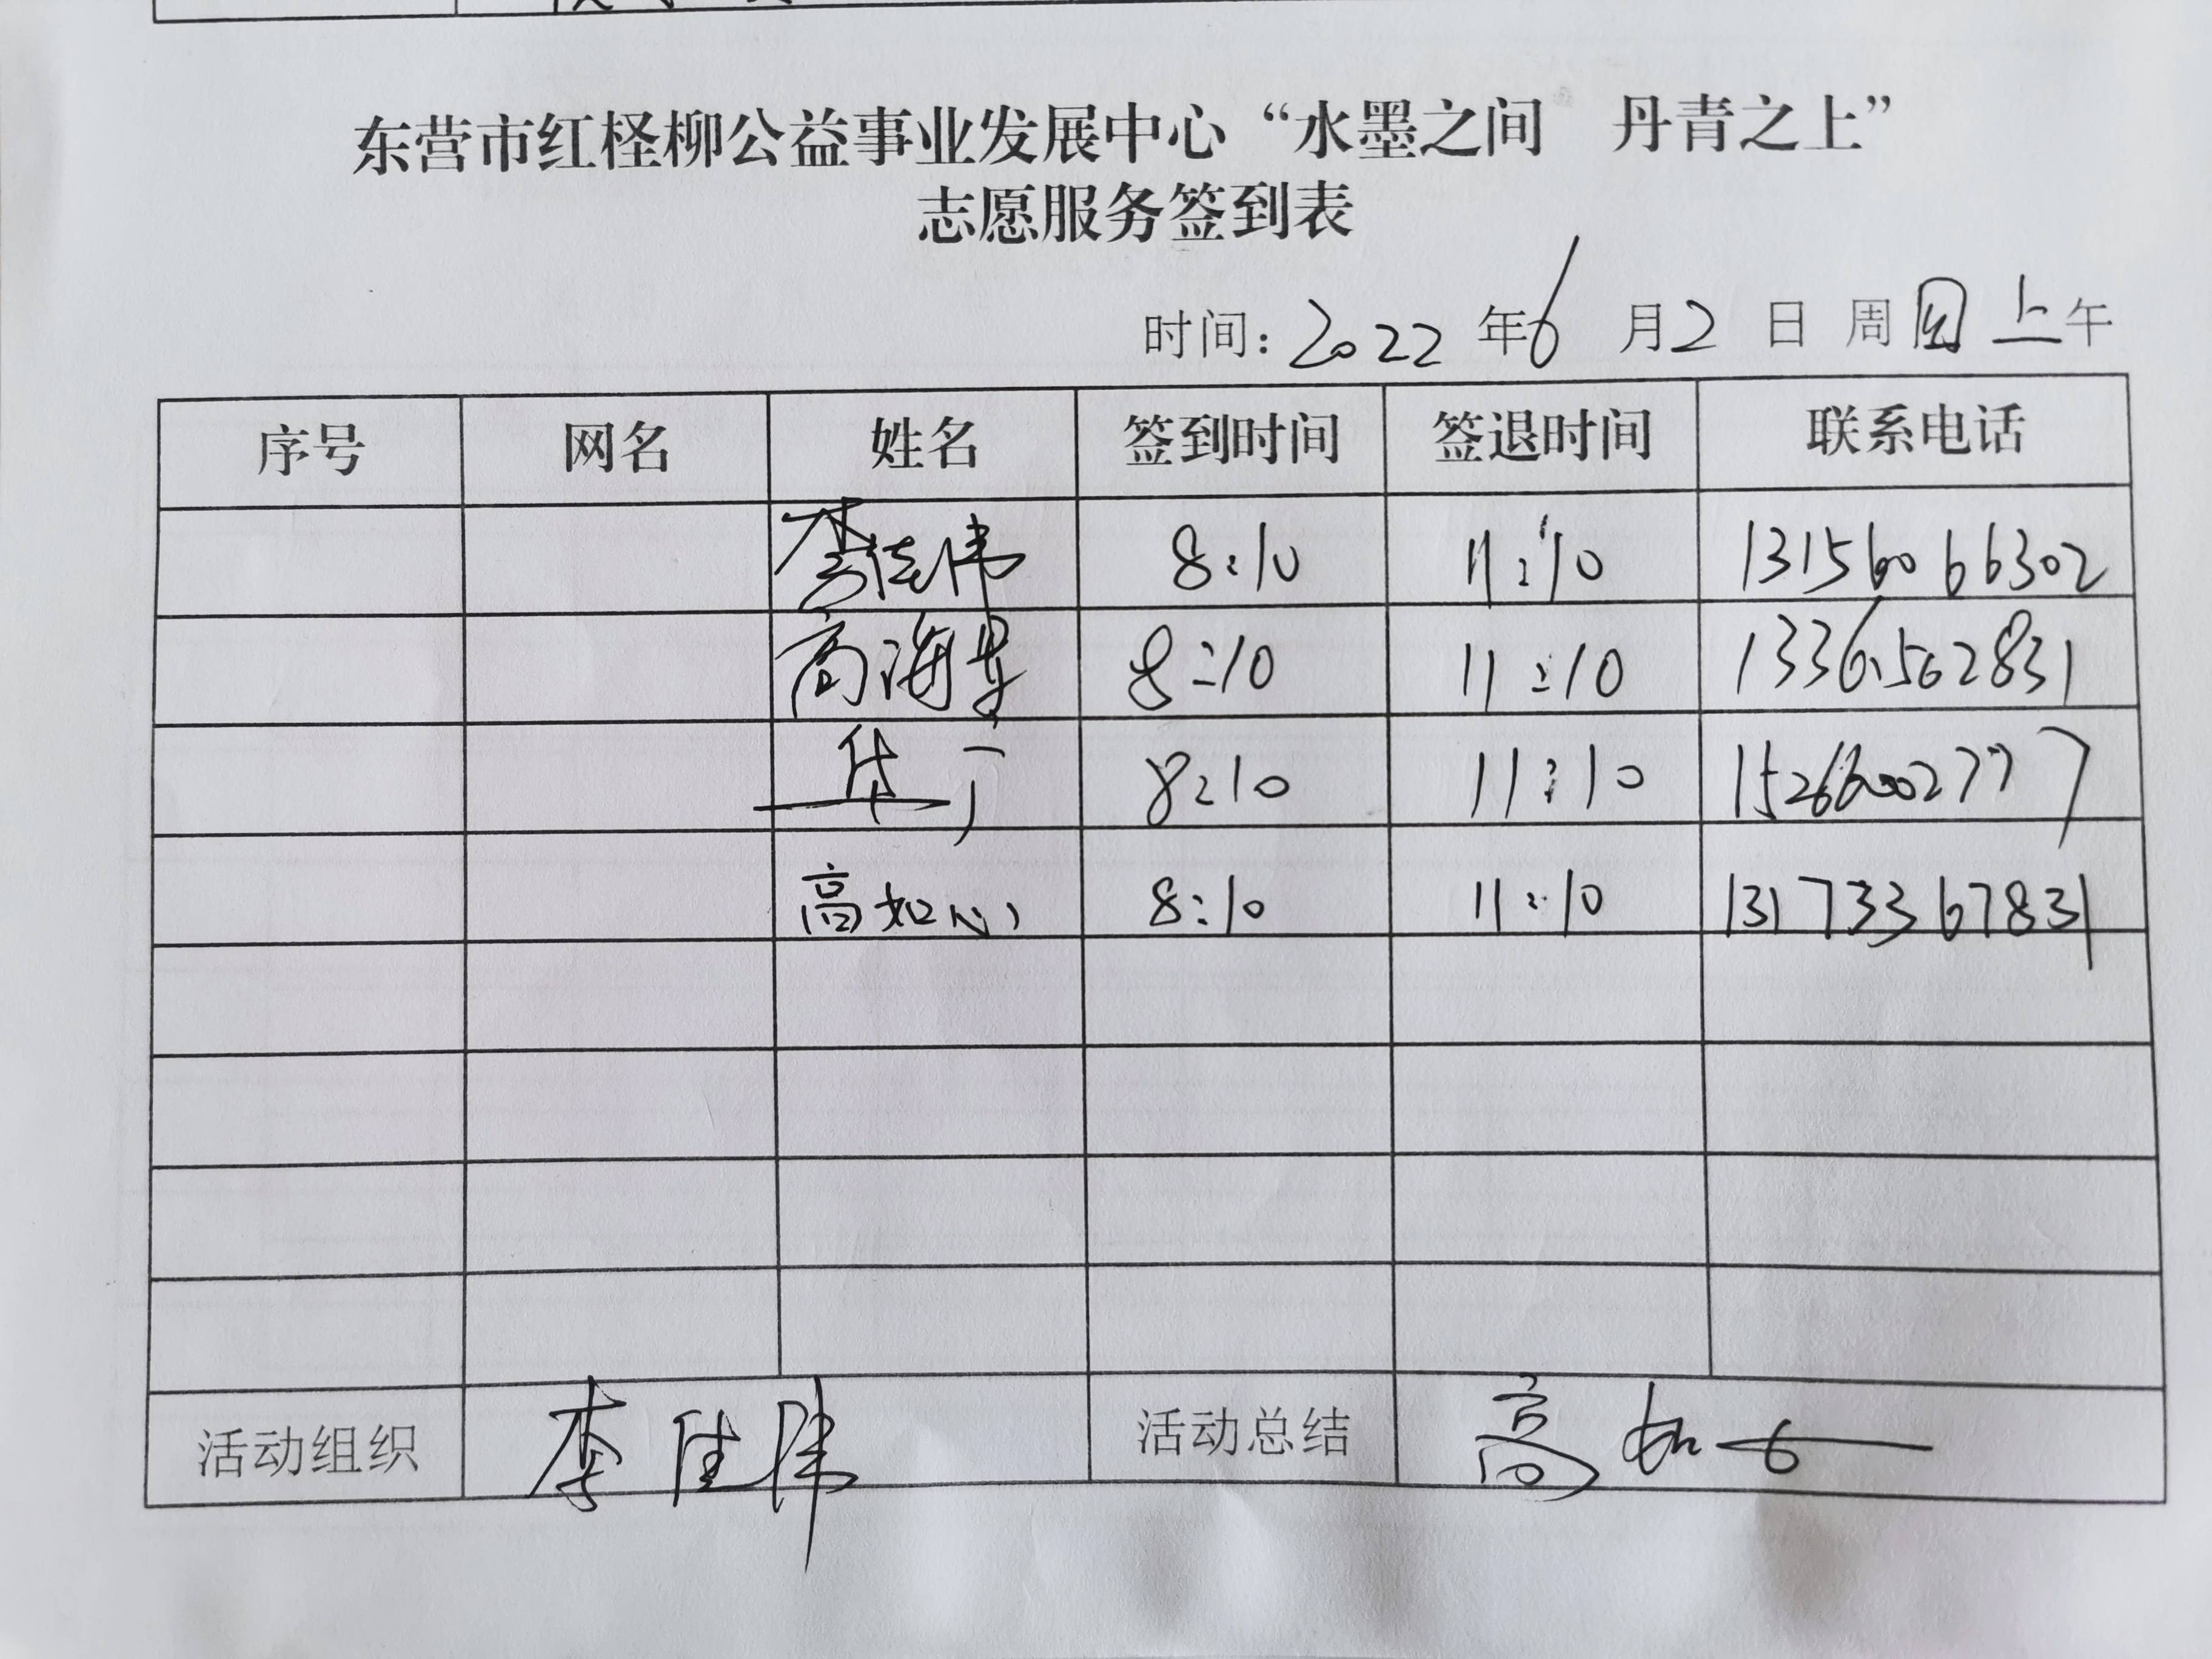 东营市红柽柳公益事业发展中心“水墨之间 丹青之上”
志愿服务签到表
时间：2022 年 6 月 2 日 周 四 上午
序号 网名 姓名 签到时间 签退时间 联系电话
李佳伟 8:10 11:10 13156066302
高海 8:10 11:10 13361562831
8:10 11:10 15266002777
高如心 8:10 11:10 13173367831
活动组织 李佳伟 活动总结 高如心